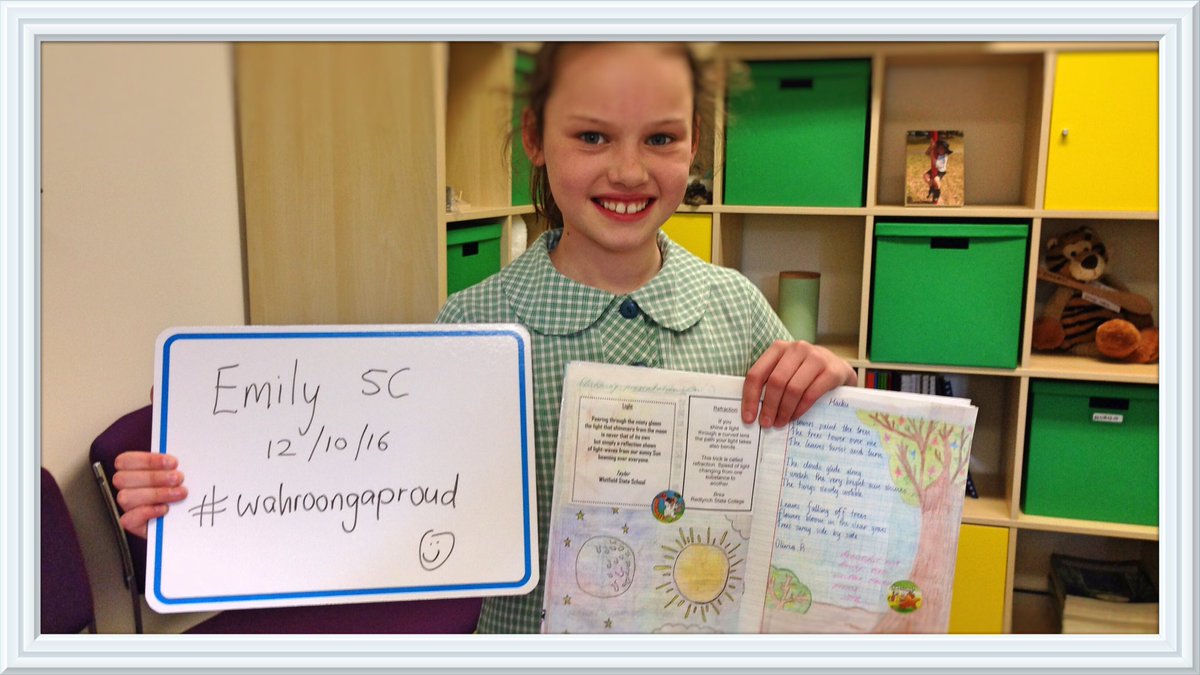 Emily 5C
12/10/16
#wahroongaproud
Light
Peering through the misty gloom
the light that shimmers from the moon
is never that of its own
but simply a reflection shown
of light-waves from our sunny Sun
beaming over everyone.
Taylor
Whitfield State School
Refraction
If you
shine a light
through a curved lens
the path your light takes
also bends.
This trick is called
refraction. Speed of light
changing from one
substance to
another.
Bree
Redlynch State College
Haiku
Flowers paint the trees
The trees tower over me
The leaves twist and turn
The clouds glide along
I watch the very bright sun
The twigs slowly
Leaves falling off trees
Flowers bloom in the clear grass
Trees sway side by side
Olivia R